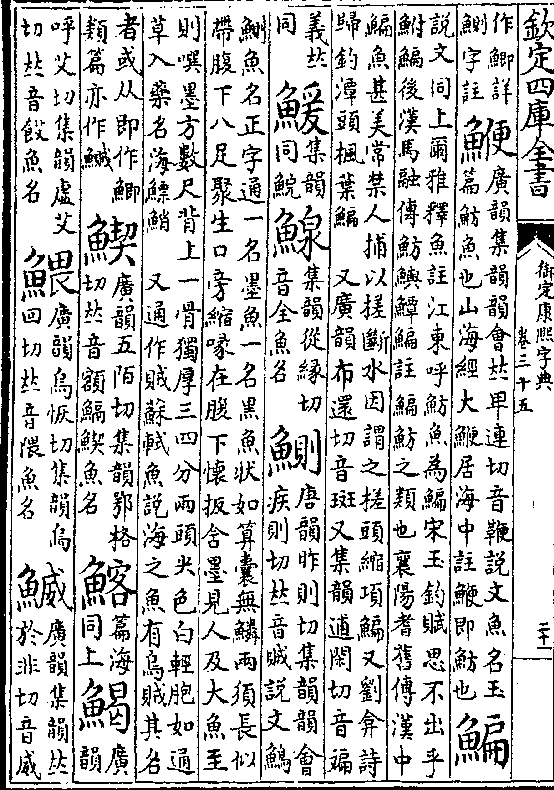 欽定四庫全書
御定康熙字典
卷三十五
二十
作鯽詳
鯽字註
鯾
廣韻集韻韻會𠀤卑連切音鞭說文魚名玉
篇魴魚也山海經大鯾居海中註鯾即魴也
鯿
說文同上爾雅釋魚註江東呼魴魚為鯿宋玉釣賦思不出乎
鮒鯿後漢馬融傳魴鱮鱏鯿註鯿魴之類也襄陽耆舊傳漢中
鯿魚甚美常禁人捕以槎斷水因謂之槎頭縮項鯿又劉弇詩
歸釣潭頭楓葉鯿 又廣韻布還切音斑又集韻逋閑切音
義𠀤
同
鰀
集韻
同鯇
鰁
集韻從緣切
音全魚名
鰂
唐韻昨則切集韻韻會
疾則切𠀤音賊說文鷠
鰂魚名正字通一名墨魚一名黑魚狀如算囊無鱗兩須長似
帶腹下八足聚生口旁縮喙在腹下懷板含墨見人及大魚至
則噀墨方數尺背上一骨獨厚三四分兩頭尖色白輕脃如通
草入藥名海鰾鮹 又通作賊蘇軾魚說海之魚有烏賊其名
者或从即作鯽
類篇亦作鱡
⿰魚契
廣韻五陌切集韻鄂格
切𠀤音額鯿⿰魚契魚名
⿰魚客
篇海
同上
⿰魚曷
廣
韻
呼艾切集韻虛艾
切𠀤音餀魚名
鰃
廣韻烏恢切集韻烏
回切𠀤音隈魚名
鰄
廣韻集韻𠀤
於非切音威